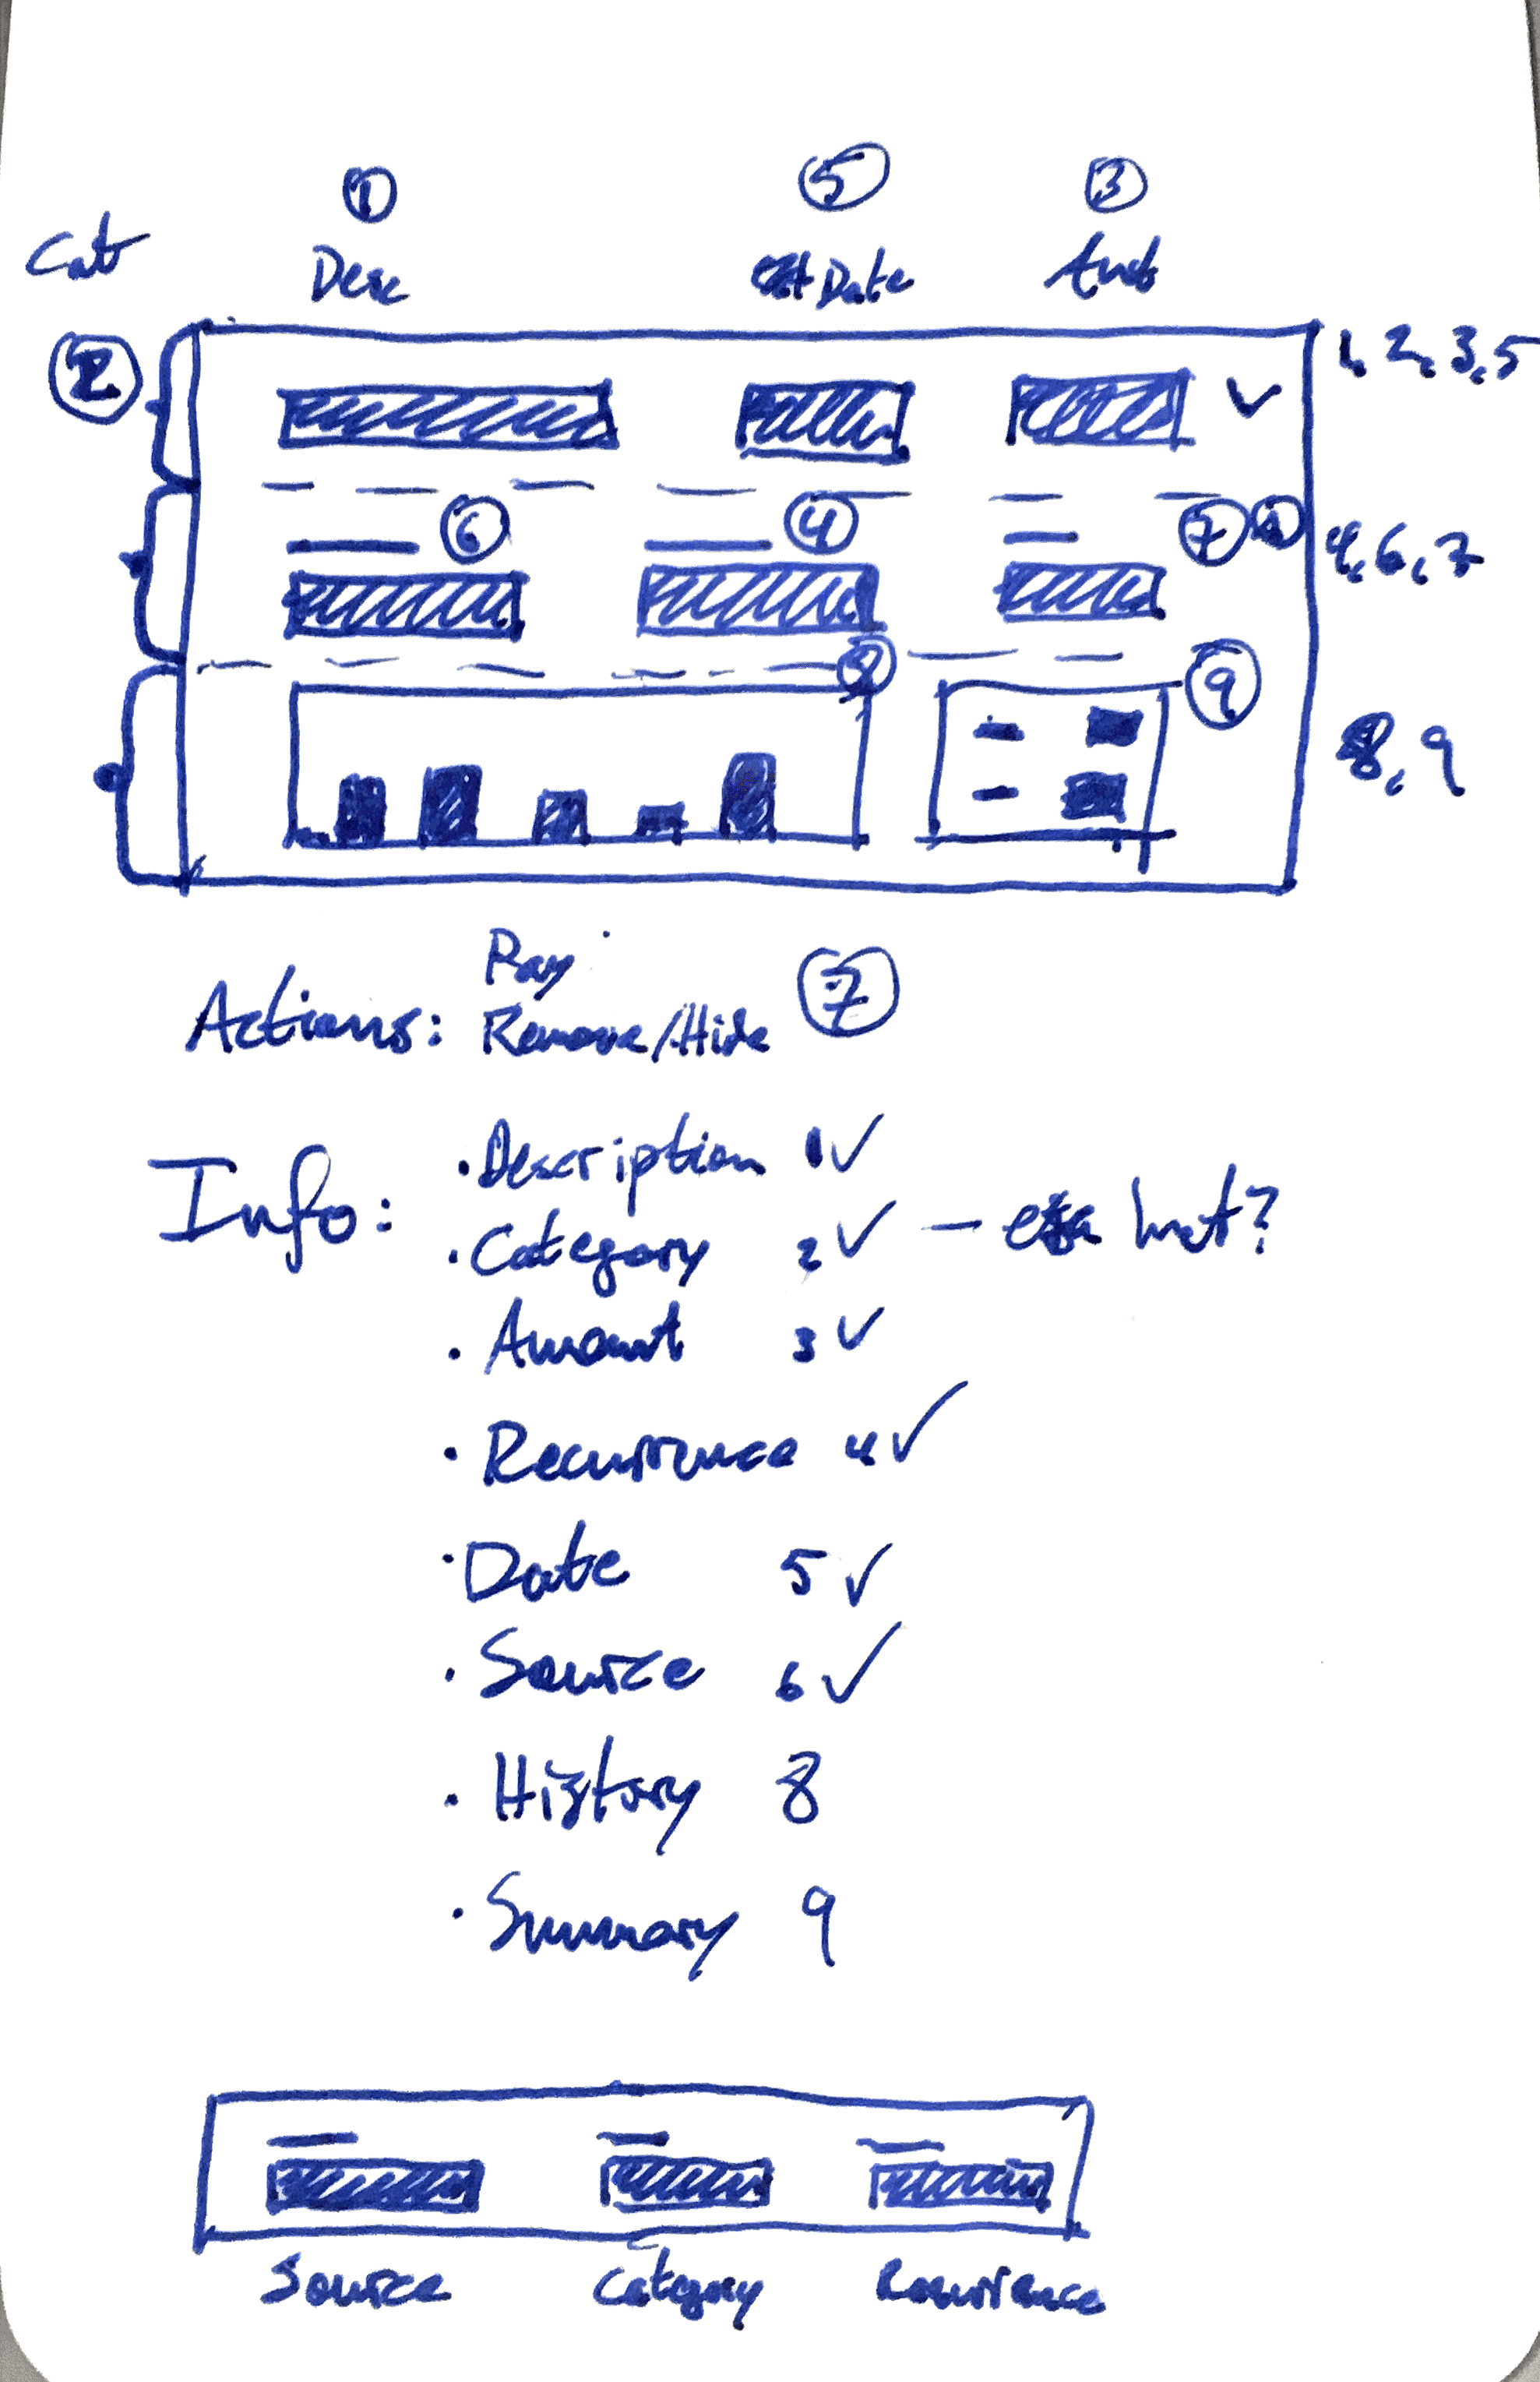 ① ⑤ ③
Cat Desc Date Amt
② 1, 2, 3, 5
⑥ ④ ⑦ 4, 6, 7
⑧ ⑨ 8, 9
Pay
Actions: Remove/Hide ⑦
Info: • Description 1 ✓
• Category 2 ✓ –
• Amount 3 ✓
• Recurrence 4 ✓
• Date 5 ✓
• Source 6 ✓
• History 8
• Summary 9
Source Category Recurrence